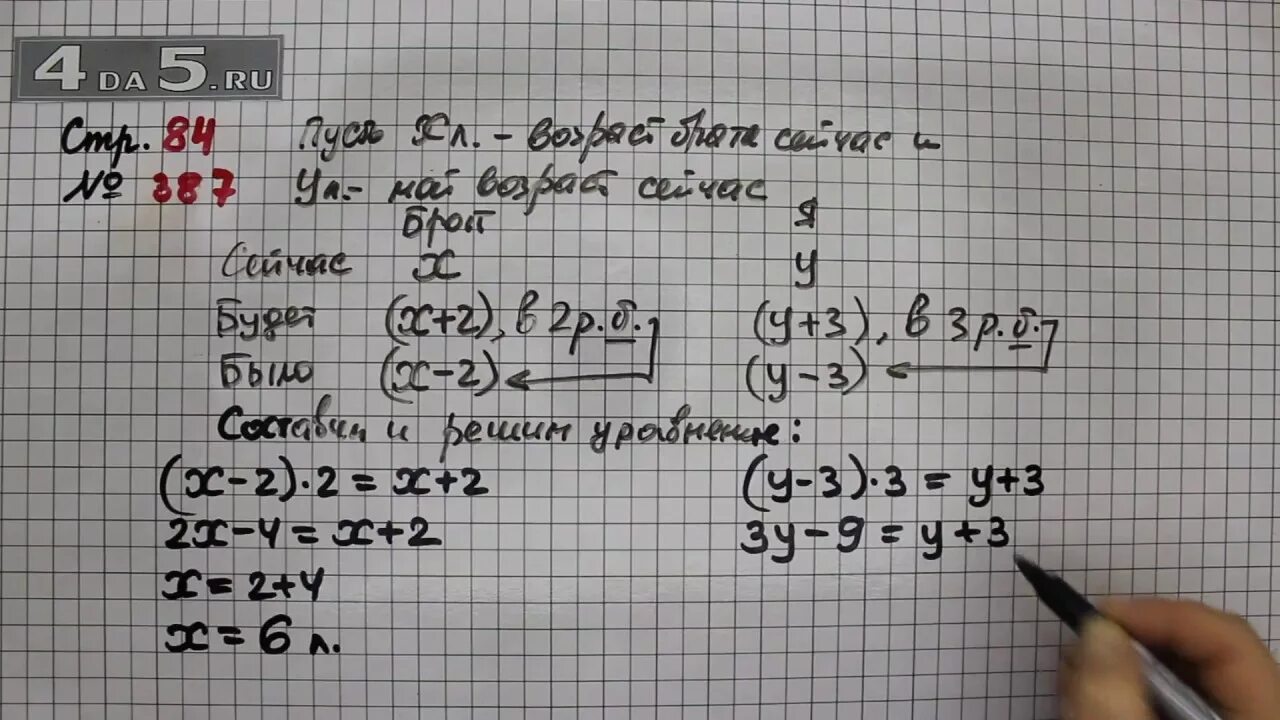 4DA5.RU
Стр. 84 Пусть x л. - возраст брата сейчас и
№ 387 У л. - мой возраст сейчас
Брат Я
Сейчас x y
Будет (x+2), в 2 р. б. (y+3), в 3 р. б.
Было (x-2) (y-3)
Составим и решим уравнение:
(x-2)·2 = x+2 (y-3)·3 = y+3
2x-4 = x+2 3y-9 = y+3
x = 2+4
x = 6 л.